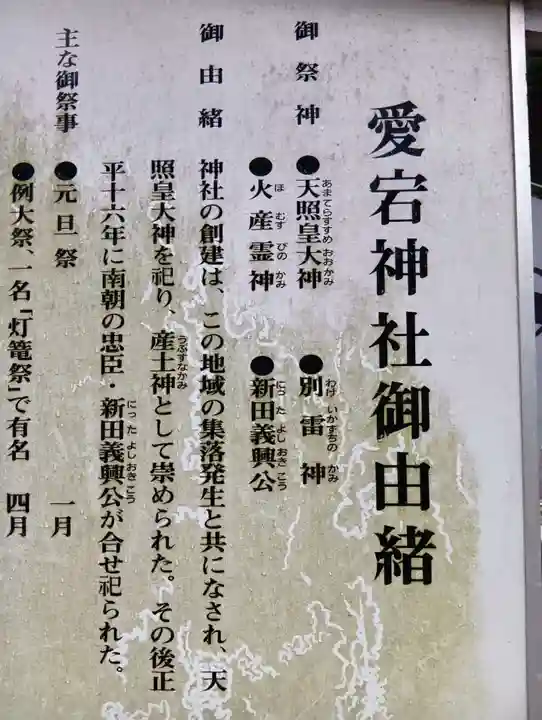 愛宕神社御由緒
御祭神 ●天照皇大神 ●別雷神
あまてらすすめおおかみ わけいかずちのかみ
●火産霊神 ●新田義興公
ほむすびのかみ にったよしおきこう
御由緒 神社の創建は、この地域の集落発生と共になされ、天
照皇大神を祀り、産土神として崇められた。その後正
うぶすなかみ
平十六年に南朝の忠臣・新田義興公が合せ祀られた。
にったよしおきこう
主な御祭事 ●元旦祭 一月
●例大祭、一名「灯篭祭」で有名 四月